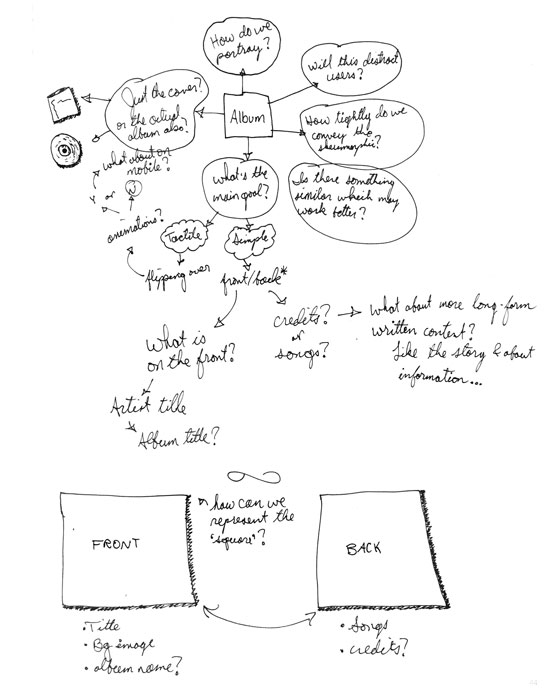 How do we
portray?
Will this distract
users?
Just the cover?
or the actual
album also?
Album
How tightly do we
convey the
skeumorphic?
what about on
mobile?
what's the
main goal?
Is there something
similar which may
work better?
Y or N
animations?
Tactile
Simple
flipping over
front/back*
credits?
or
songs?
What about more long-form
written content?
Like the story & about
information...
What is
on the front?
Artist title
Album title?
how can we
represent the
"square"?
FRONT
BACK
• Title
• Bg image
• album name?
• Songs
• credits?